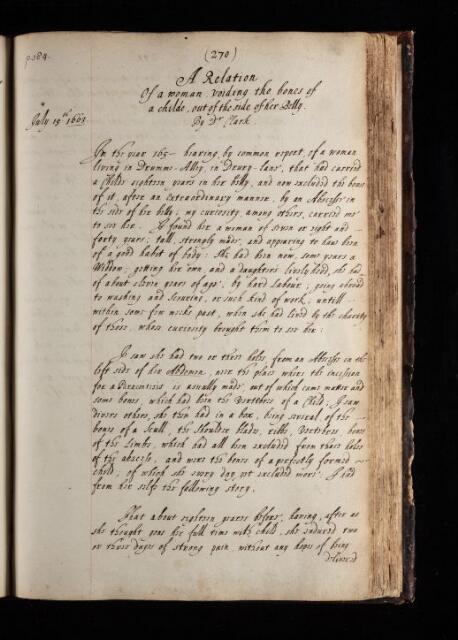 (270)
p.184.
A Relation
Of a woman voiding the bones of
a childe, out of the side of her Belly.
By Dr Clark.
July 15th 1663
In the year 165— hearing by common report, of a woman
living in Drumms-Alley, in Drury-lane, that had carried
a Childs eighteen years in her belly, and now excluded the bones
of it, after an Extraordinary manner, by an Abscesse in
the side of her belly; my curiosity, among others, carried me
to see her. I found her a woman of seven or eight and
forty years; tall, strongly made, and appearing to have been
of a good habit of body: She had been now, some years a
Widdow; getting her own, and a daughters livelyhood, she had
of about eleven years of age, by hard labour; going abroad
to washing and Scouring, or such kind of work, untill
within some few weeks past, when she had lived by the charity
of those, whose curiosity brought them to see her:
I saw she had two or three holes, from an Abscesse in the
left side of her Abdomen, near the place where the incision
for a Paracentesis is usually made, out of which came matter and
some bones, which had been the Vertebers of a Child; I saw
divers others, she then had in a box, being several of the
bones of a Scull, the Shoulder blades, ribbs, Vertebers, bones
of the Limbs, which had all been excluded from those holes
of the abscesse, and were the bones of a perfectly formed
child; of which she every day yet excluded more. I had
from her selfe the following story.
That about eighteen years before, having, after as
she thought gone her full time with child, she endured two
or three dayes of strong pain, without any hopes of being
delivered